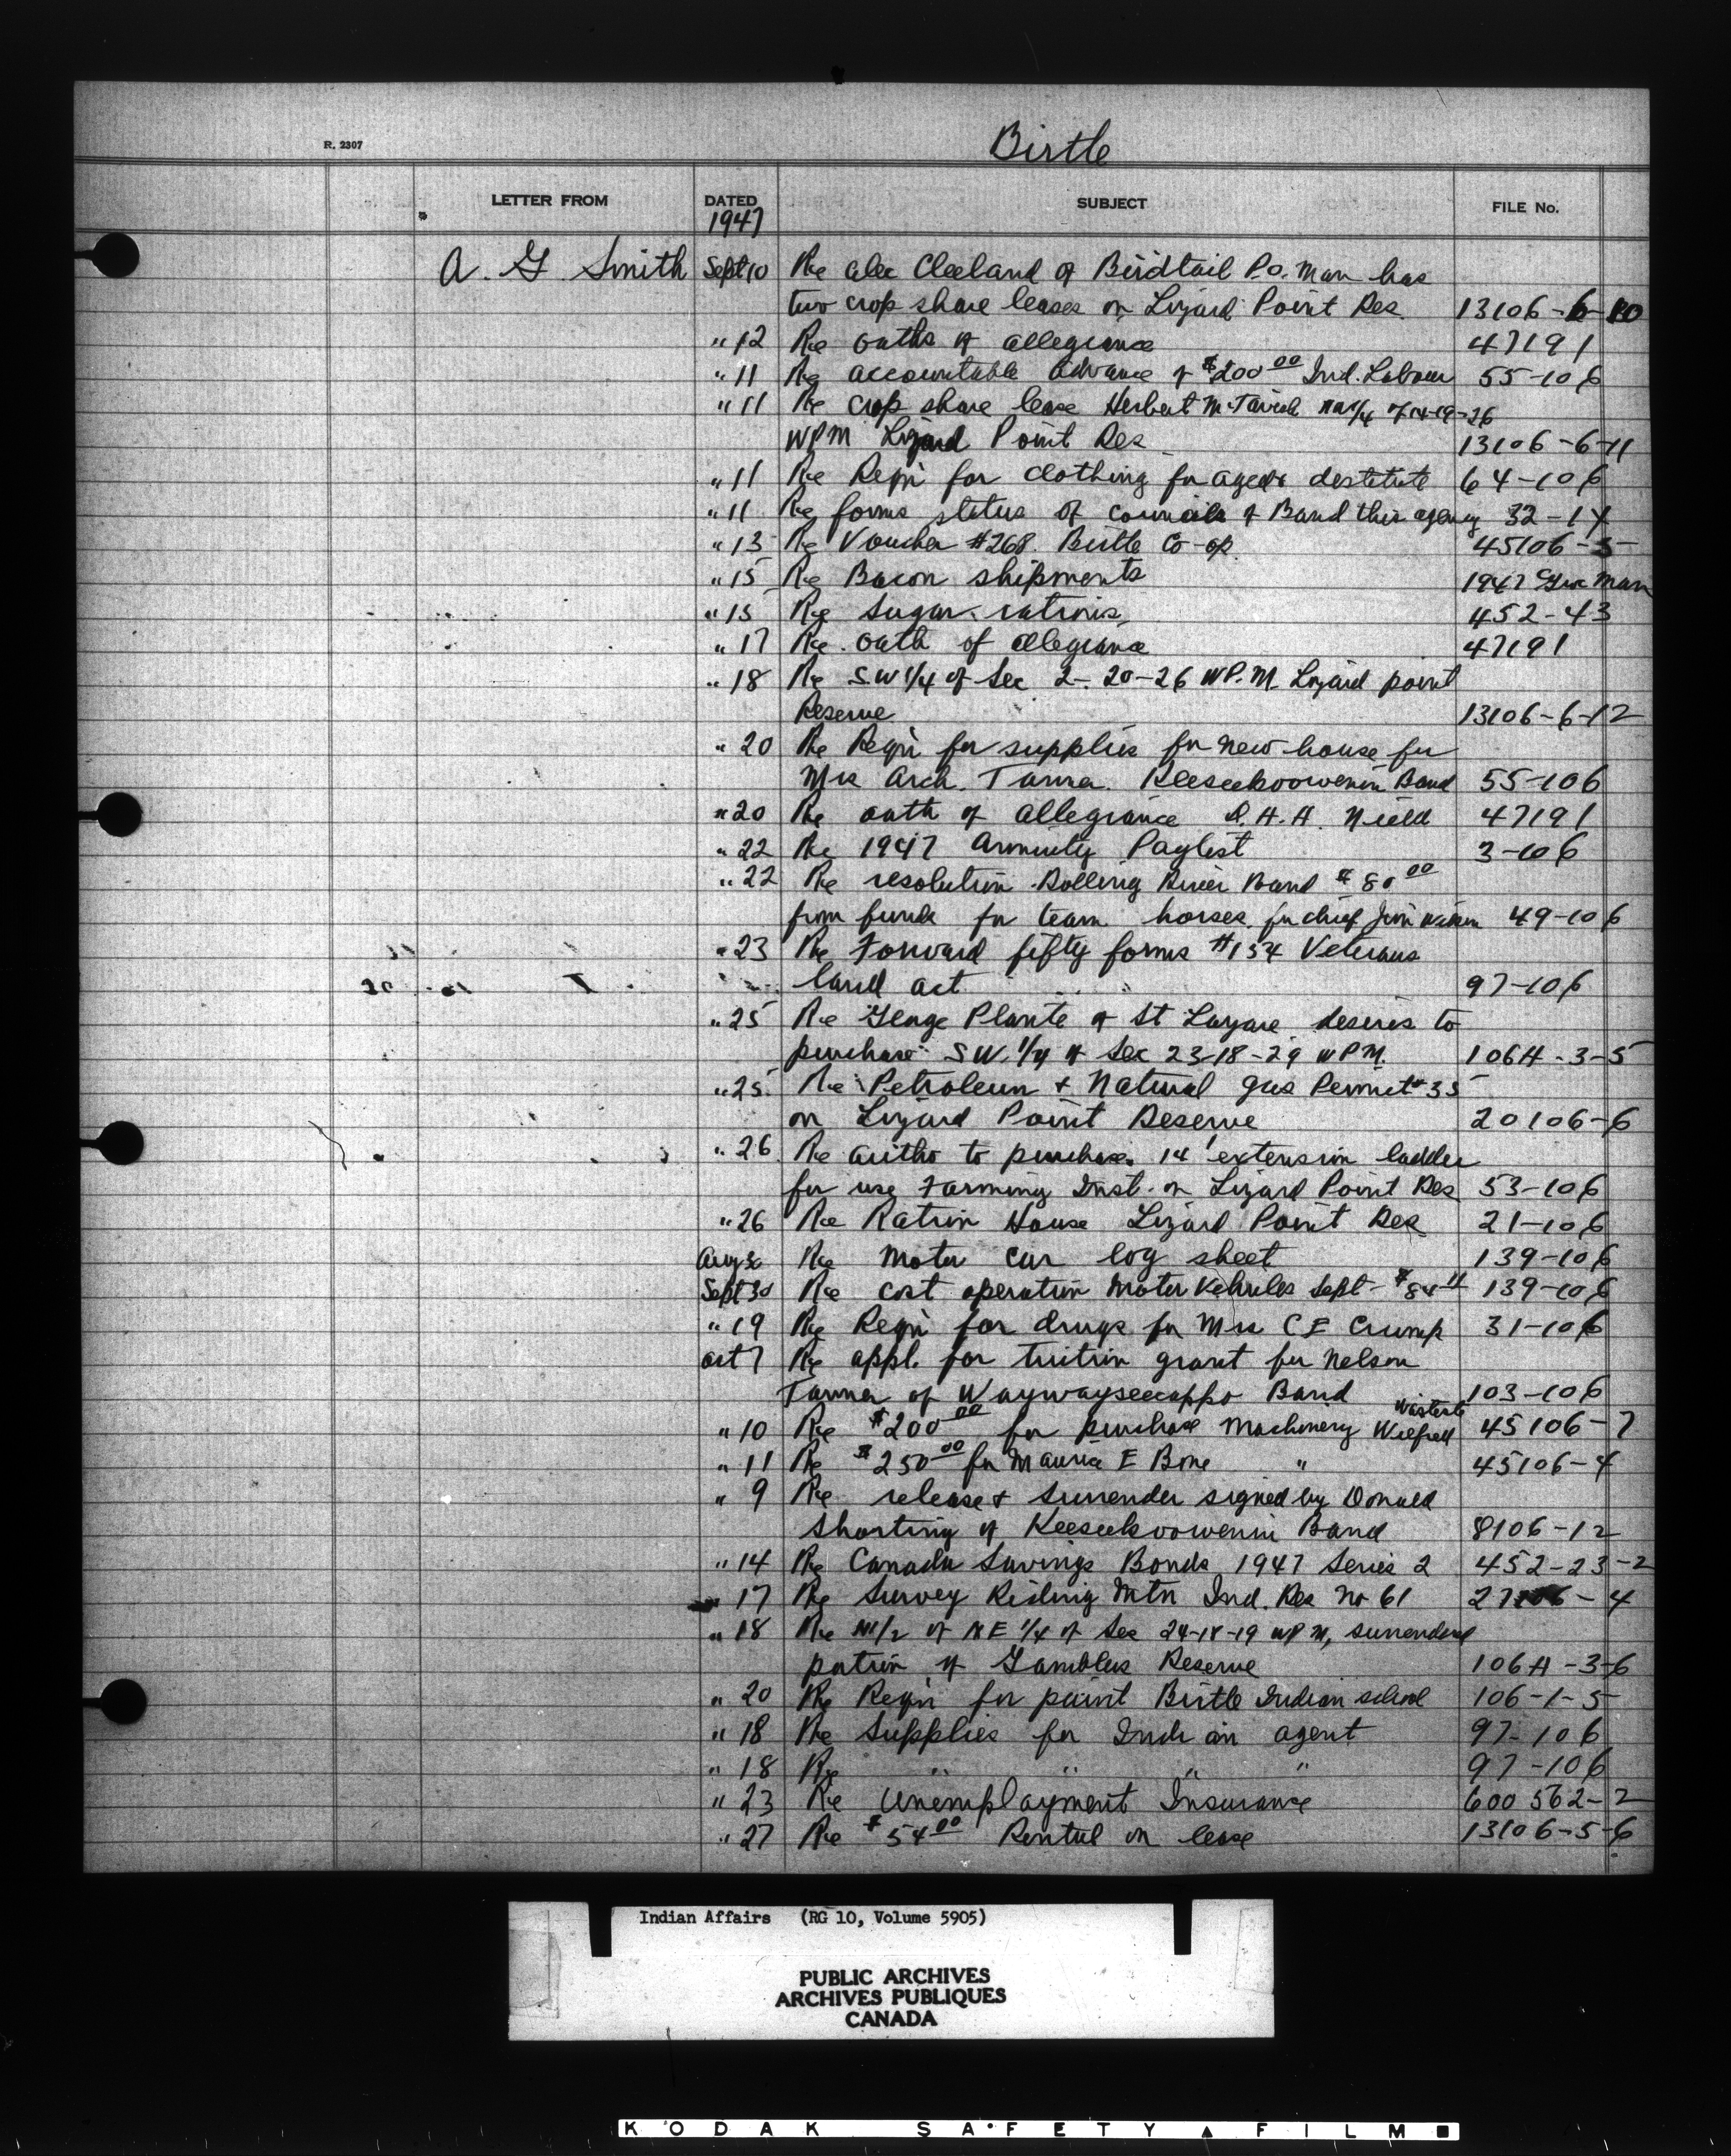 R. 2307
Birtle
LETTER FROM DATED SUBJECT FILE No.
1947
A. G Smith Sept 10 Re Alec Cleeland of Birdtail P.O. Man has
two crop share leases on Lizard Point Res. 13106-6-10
" 12 Re oaths of allegiance 47191
" 11 Re accountable advance of $200 00 Ind. Labour 55-106
" 11 Re crop share lease Herbert McTavish 1/4 of 14-19-26
WPM Lizard Point Res 13106-6-11
" 11 Re Reqn for clothing for aged & destitute 64-106
" 11 Re forms status of councils of Band this agency 32-14
" 13 Re Voucher #268. Birtle Co-op. 45106-5
" 15 Re Bacon shipments 1947 Man
" 15 Re Sugar rations, 452-43
" 17 Re oath of allegiance 47191
" 18 Re S.W 1/4 of Sec 2-20-26 WP.M. Lizard point
Reserve 13106-6-12
" 20 Re Reqn for supplies for new house for
Mrs Arch. Tanner. Keeseekoowenin Band 55-106
" 20 Re oath of allegiance D.H.H. Nield 47191
" 22 Re 1947 Annuity Paylist 3-106
" 22 Re resolution Rolling River Band $80 00
from funds for team horses for chief Jim 49-106
" 23 Re Forward fifty forms #154 Veterans
land act 97-106
" 25 Re George Plante of St Lazare desires to
purchase SW. 1/4 of Sec 23-18-29 WPM. 106A-3-5
" 25 Re Petroleum & Natural gas Permit #35
on Lizard Point Reserve 20106-6
" 26 Re autho to purchase 14' extension ladder
for use Farming Inst. on Lizard Point Res 53-106
" 26 Re Ration House Lizard Point Res 21-106
Aug 30 Re Motor Car log sheet 139-106
Sept 30 Re cost operation Motor Vehicles Sept - $84 11 139-106
" 19 Re Reqn for drugs for Mrs C E Crump 31-106
Oct 7 Re appl. for tuition grant for Nelson
Tanner of Waywayseecappo Band 103-106
" 10 Re $200 00 for purchase Machinery Wilfred 45106-7
" 11 Re $250 00 for Maurice E Bone " 45106-4
" 9 Re release & Surrender signed by Donald
Shorting of Keeseekoowenin Band 8106-12
" 14 Re Canada Savings Bonds 1947 Series 2 452-23-2
" 17 Re Survey Riding Mtn Ind. Res No 61 27106-4
" 18 Re N1/2 of NE 1/4 of Sec 24-18-19 WPM, surrendered
portion of Gamblers Reserve 106A-3-6
" 20 Re Reqn for paint Birtle Indian school 106-1-5
" 18 Re Supplies for Indian agent 97-106
" 18 Re " " " " 97-106
" 23 Re Unemployment Insurance 600 562-2
" 27 Re $54 00 Rental on lease 13106-5-6
Indian Affairs (RG 10, Volume 5905)
PUBLIC ARCHIVES
ARCHIVES PUBLIQUES
CANADA
KODAK SAFETY FILM